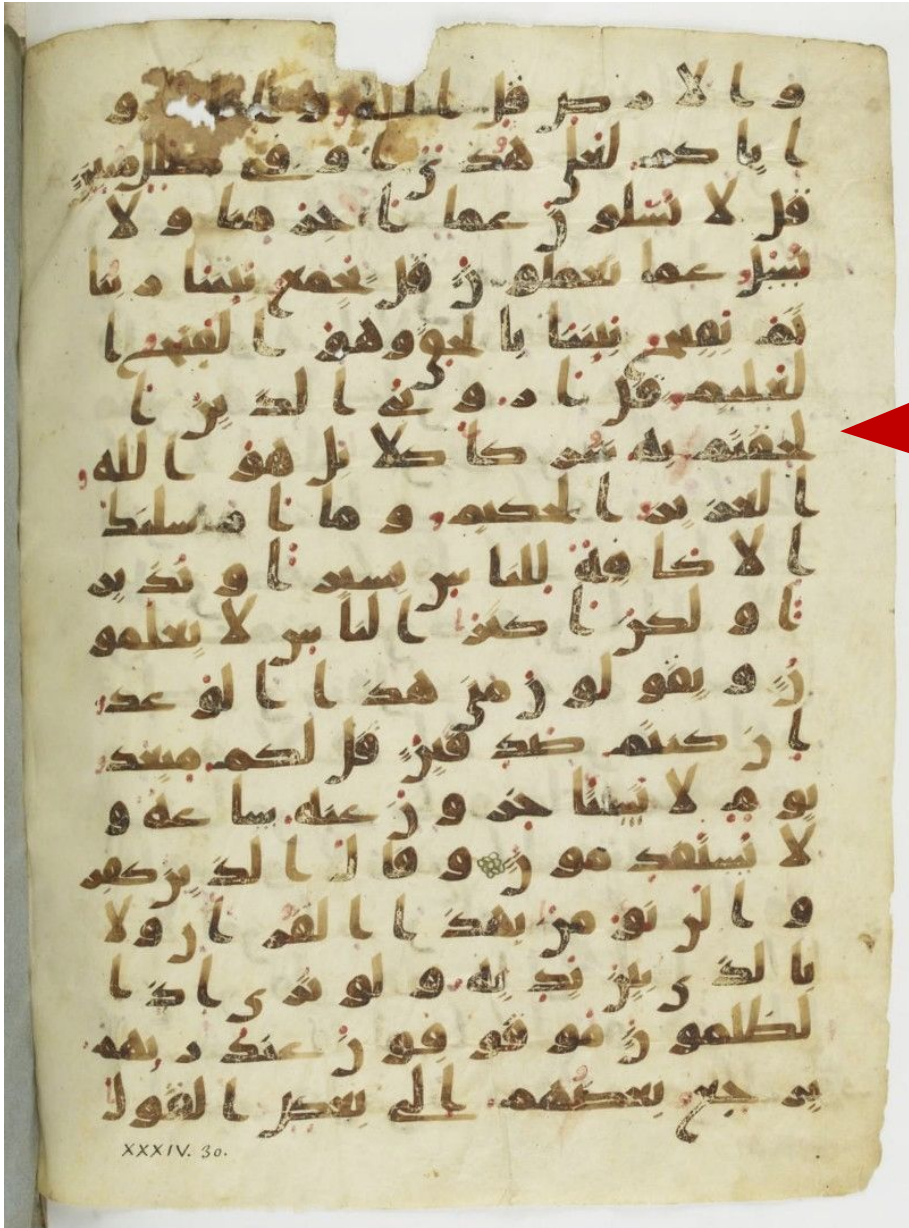 و الارض قل الله و انا و
اياكم لعلى هدى او فى ضلل مبين
قل لا تسلون عما اجرمنا و لا
نسل عما تعملون قل يجمع بيننا ربنا
ثم يفتح بيننا بالحق وهو الفتح ا
لعليم قل ارونى الذين ا
لحقتم به شركا كلا بل هو الله
العزيز الحكيم وما ارسلنك
الا كافة للناس بشيرا و نذير
ا و لكن اكثر الناس لا يعلمو
ن و يقولون متى هذا الوعد
ان كنتم صدقين قل لكم ميعد
يوم لا تستخرون عنه ساعة و
لا تستقدمون و قال الذين كفر
وا لن نومن بهذا القران ولا
بالذى بين يديه و لو ترى اذ ا
لظلمون موقوفون عند ربهم
يرجع بعضهم الى بعض القول
XXXIV. 30.